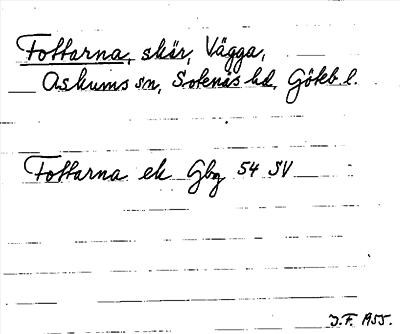 Tottarna, skär, Vägga,
Askums sn, Sotenäs hd, Göteb l.
Tottarna ek Gbg 54 SV
J.F. 1955.